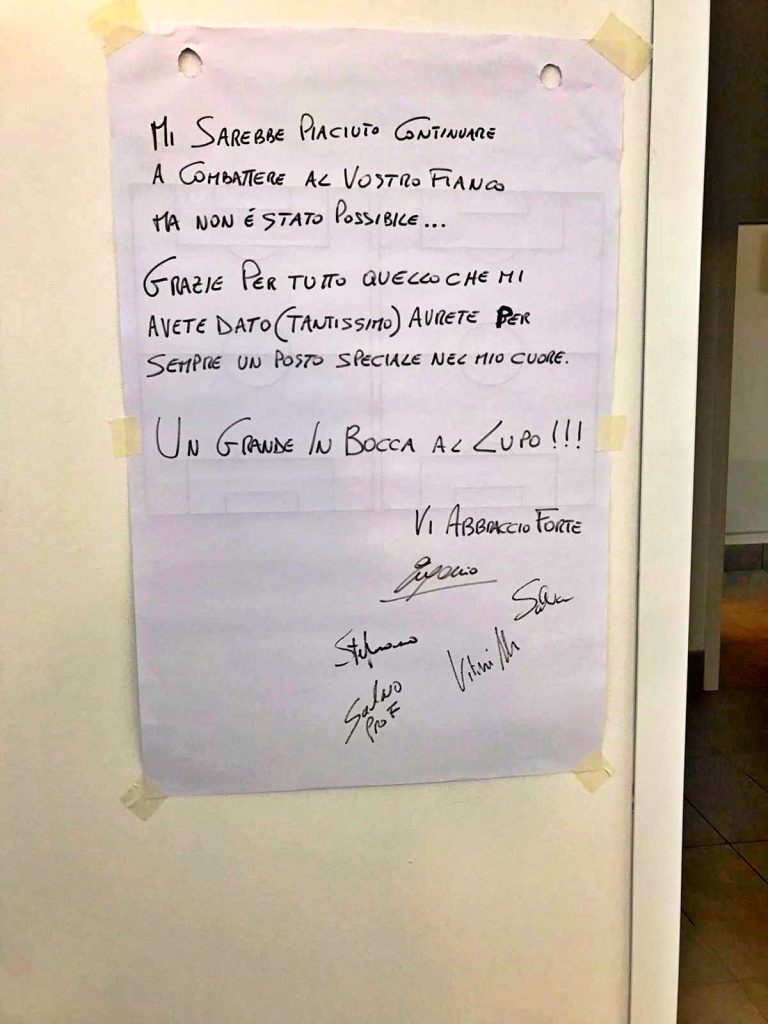 MI SAREBBE PIACIUTO CONTINUARE
A COMBATTERE AL VOSTRO FIANCO
MA NON É STATO POSSIBILE...
GRAZIE PER TUTTO QUELLO CHE MI
AVETE DATO (TANTISSIMO) AVRETE PER
SEMPRE UN POSTO SPECIALE NEL MIO CUORE.
UN GRANDE IN BOCCA AL LUPO!!!
VI ABBRACCIO FORTE
Eugenio
Stefano
Salvo
Prof